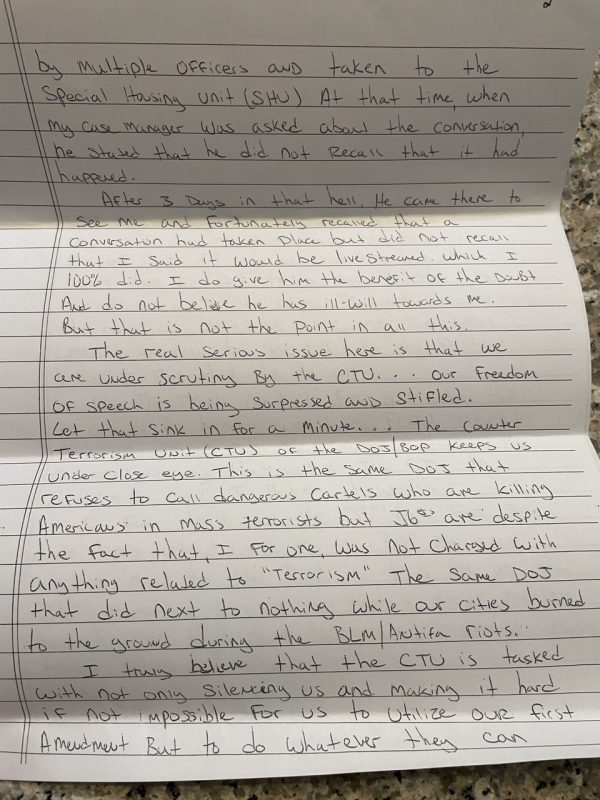 2
by multiple officers and taken to the
Special Housing Unit (SHU) At that time, when
my case manager was asked about the conversation,
he stated that he did not Recall that it had
happened.
After 3 Days in that hell, He came there to
See me and fortunately recalled that a
conversation had taken place but did not recall
that I said it would be livestreamed. which I
100% did. I do give him the benefit of the Doubt
And do not belive he has ill-will towards me.
But that is not the point in all this.
The real serious issue here is that we
are under scrutiny By the CTU... our freedom
of speech is being surpressed and stifled.
Let that sink in for a minute... The Counter
Terrorism Unit (CTU) of the DOJ/BOP keeps us
under close eye. This is the same DOJ that
refuses to call dangerous cartels who are killing
Americans in mass terrorists but J6ers are despite
the fact that, I for one, was not charged with
anything related to "Terrorism" The same DOJ
that did next to nothing while our cities burned
to the ground during the BLM/Antifa riots..
I truly believe that the CTU is tasked
with not only silencing us and making it hard
if not impossible for us to utilize our first
Amendment But to do whatever they can